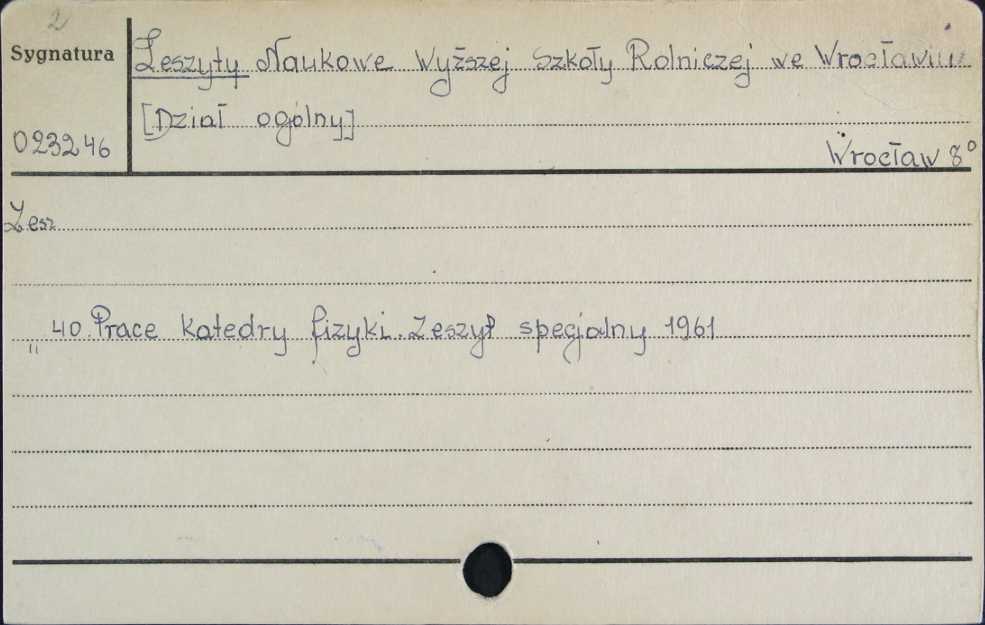 2
Sygnatura
Zeszyty Naukowe Wyższej Szkoły Rolniczej we Wrocławiu
[Dział ogólny]
023246
Wrocław 8°
Zesz
40. Prace Katedry fizyki. Zeszyt specjalny 1961
"